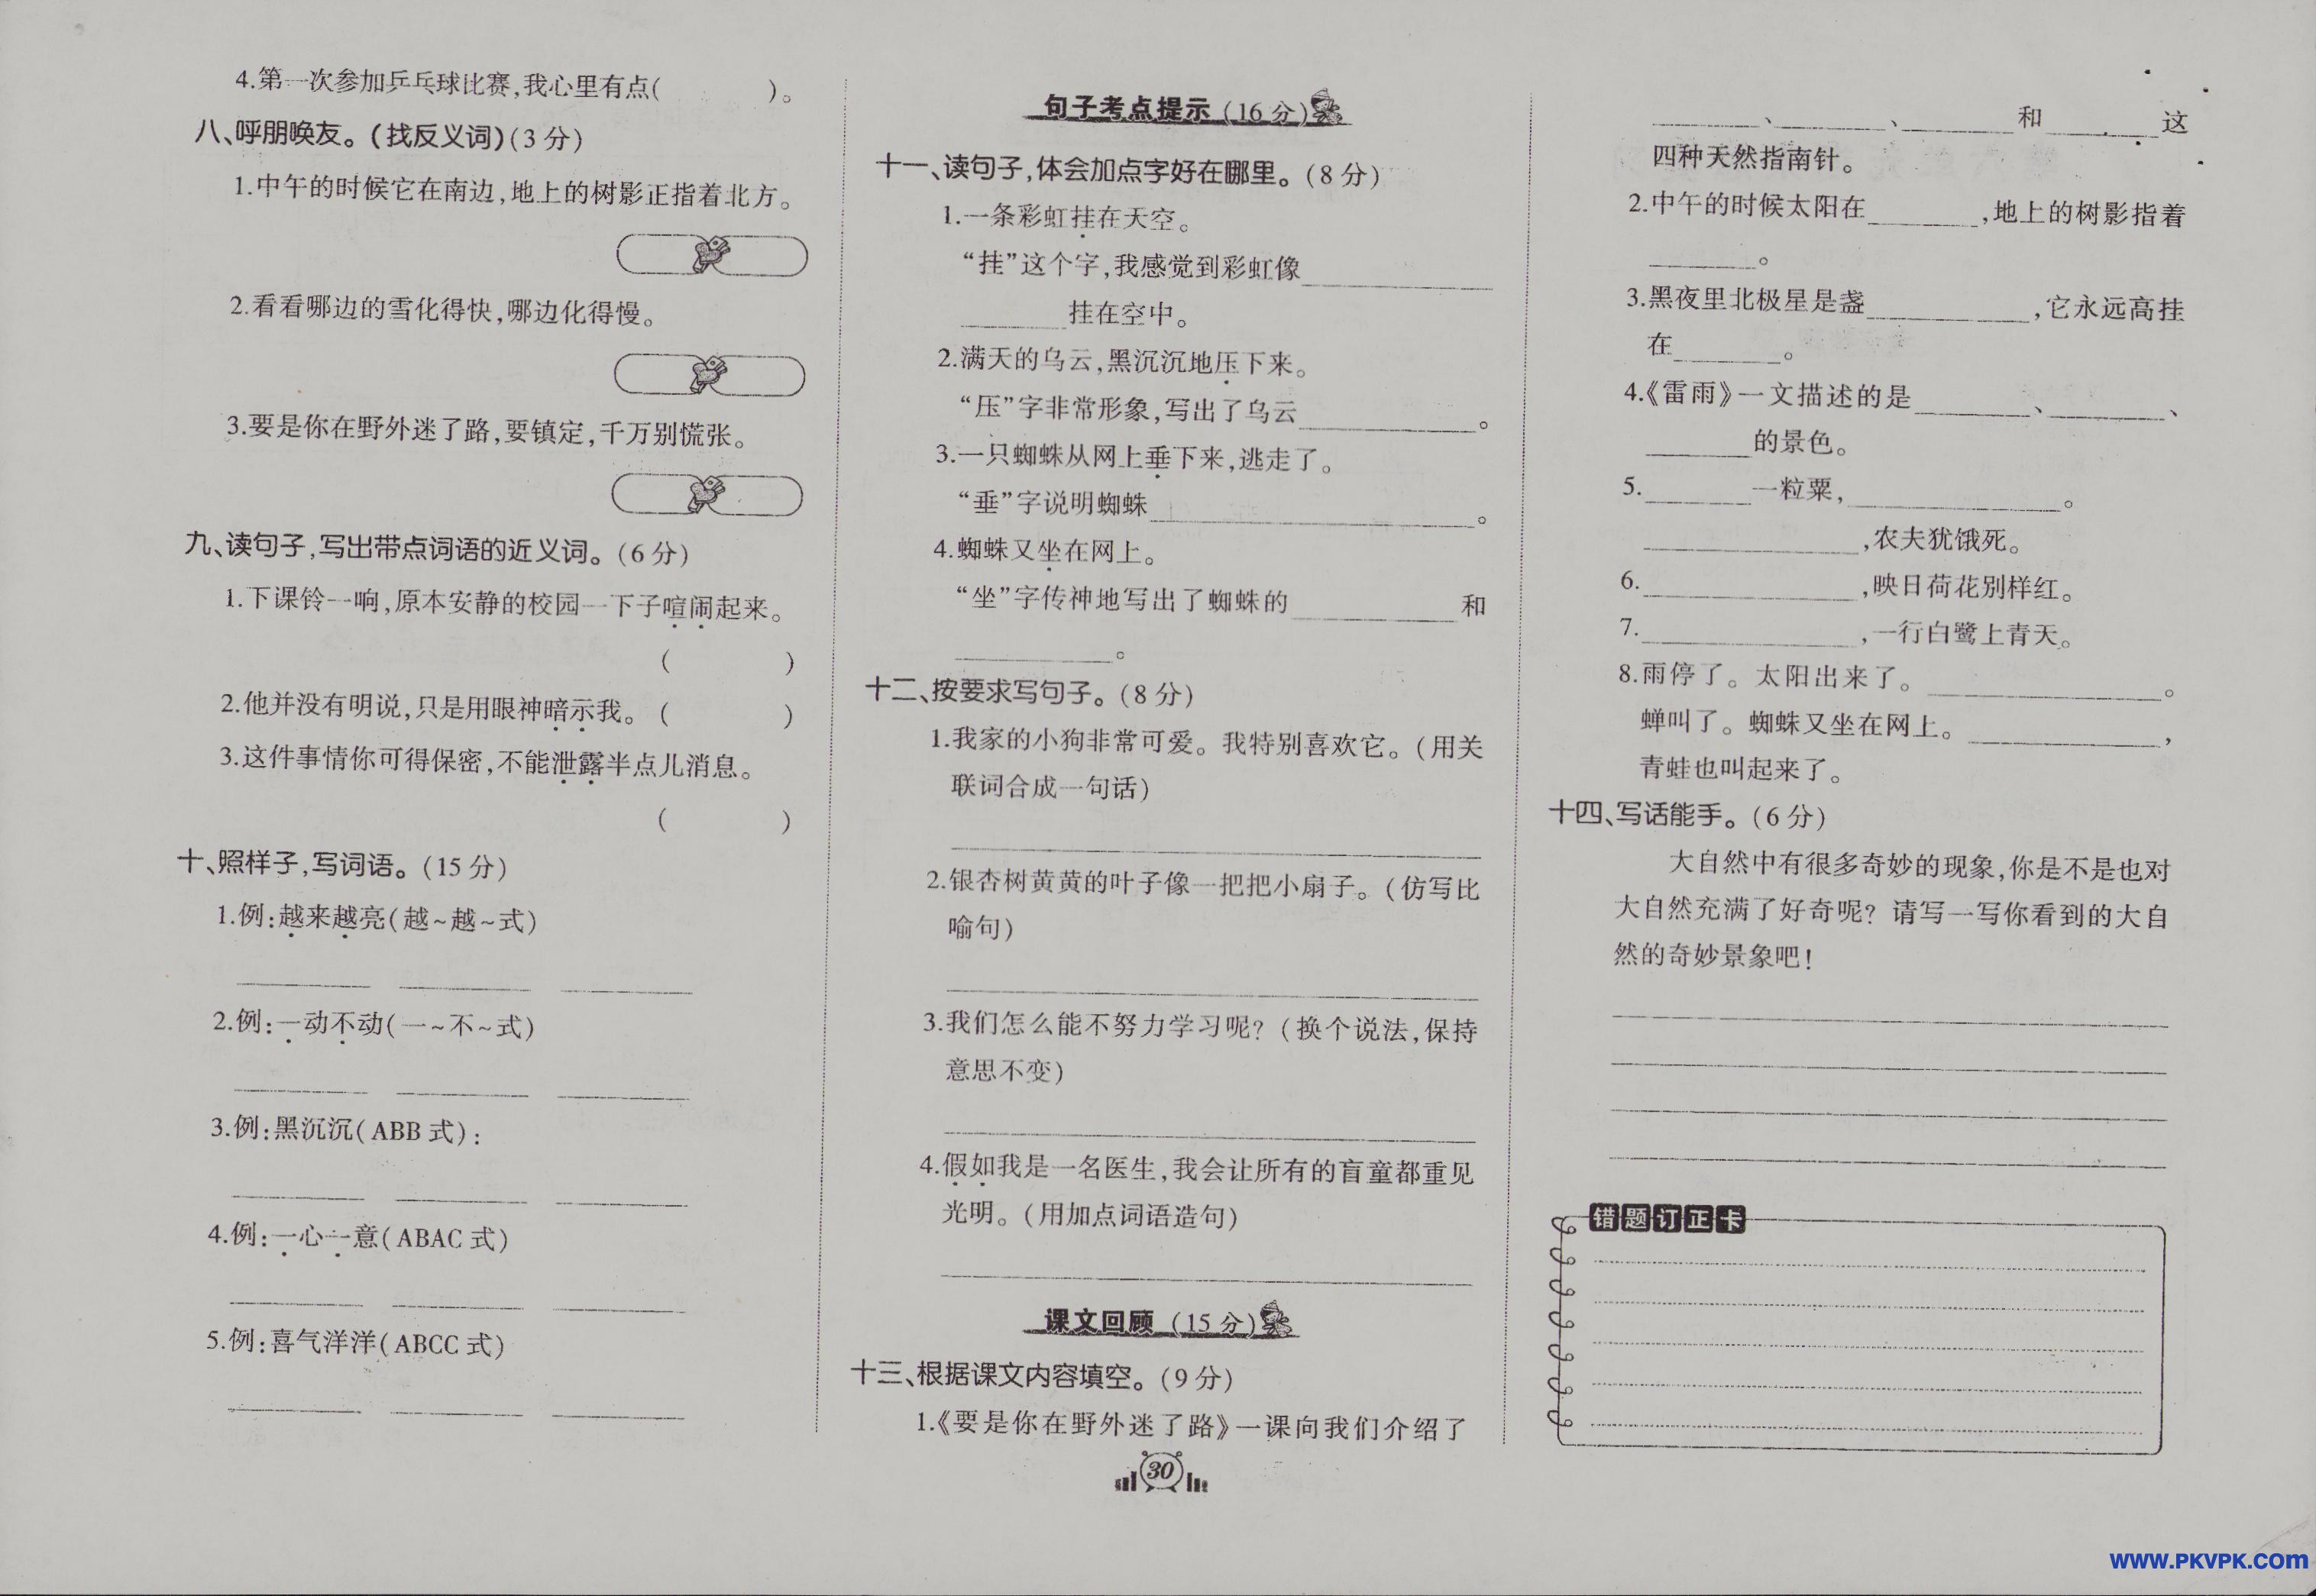 4.第一次参加乒乓球比赛,我心里有点(　　　)。
八、呼朋唤友。(找反义词)(3分)
1.中午的时候它在南边,地上的树影正指着北方。
2.看看哪边的雪化得快,哪边化得慢。
3.要是你在野外迷了路,要镇定,千万别慌张。
九、读句子,写出带点词语的近义词。(6分)
1.下课铃一响,原本安静的校园一下子喧闹起来。
(　　　)
2.他并没有明说,只是用眼神暗示我。(　　　)
3.这件事情你可得保密,不能泄露半点儿消息。
(　　　)
十、照样子,写词语。(15分)
1.例:越来越亮(越~越~式)
______ ______ ______
2.例:一动不动(一~不~式)
______ ______ ______
3.例:黑沉沉(ABB式):
______ ______ ______
4.例:一心一意(ABAC式)
______ ______ ______
5.例:喜气洋洋(ABCC式)
______ ______ ______
句子考点提示(16分)
十一、读句子,体会加点字好在哪里。(8分)
1.一条彩虹挂在天空。
“挂”这个字,我感觉到彩虹像________
_____挂在空中。
2.满天的乌云,黑沉沉地压下来。
“压”字非常形象,写出了乌云________。
3.一只蜘蛛从网上垂下来,逃走了。
“垂”字说明蜘蛛______________。
4.蜘蛛又坐在网上。
“坐”字传神地写出了蜘蛛的_______和
_______。
十二、按要求写句子。(8分)
1.我家的小狗非常可爱。我特别喜欢它。(用关
联词合成一句话)
________________________
2.银杏树黄黄的叶子像一把把小扇子。(仿写比
喻句)
________________________
3.我们怎么能不努力学习呢?(换个说法,保持
意思不变)
________________________
4.假如我是一名医生,我会让所有的盲童都重见
光明。(用加点词语造句)
________________________
课文回顾(15分)
十三、根据课文内容填空。(9分)
1.《要是你在野外迷了路》一课向我们介绍了
30
_____、_____、_____和_____这
四种天然指南针。
2.中午的时候太阳在_____,地上的树影指着
_____。
3.黑夜里北极星是盏_______,它永远高挂
在_____。
4.《雷雨》一文描述的是_____、_____、
_____的景色。
5._____一粒粟,_________。
_________,农夫犹饿死。
6._________,映日荷花别样红。
7._________,一行白鹭上青天。
8.雨停了。太阳出来了。__________。
蝉叫了。蜘蛛又坐在网上。________,
青蛙也叫起来了。
十四、写话能手。(6分)
大自然中有很多奇妙的现象,你是不是也对
大自然充满了好奇呢?请写一写你看到的大自
然的奇妙景象吧!
错题订正卡
www.PKVPK.com